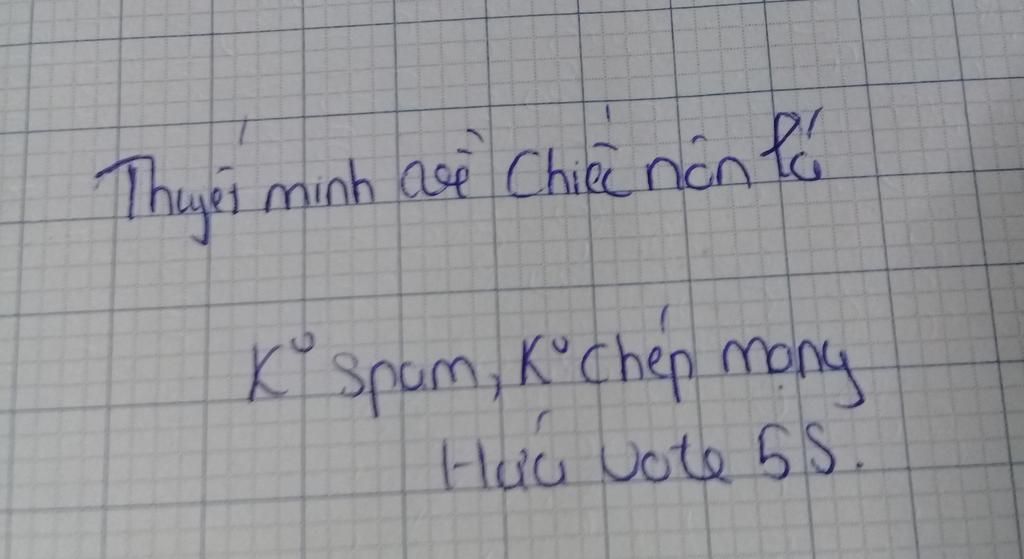 Thuyết minh về chiếc nón lá
K° spam, K° chép mạng
Hứa vote 5S.